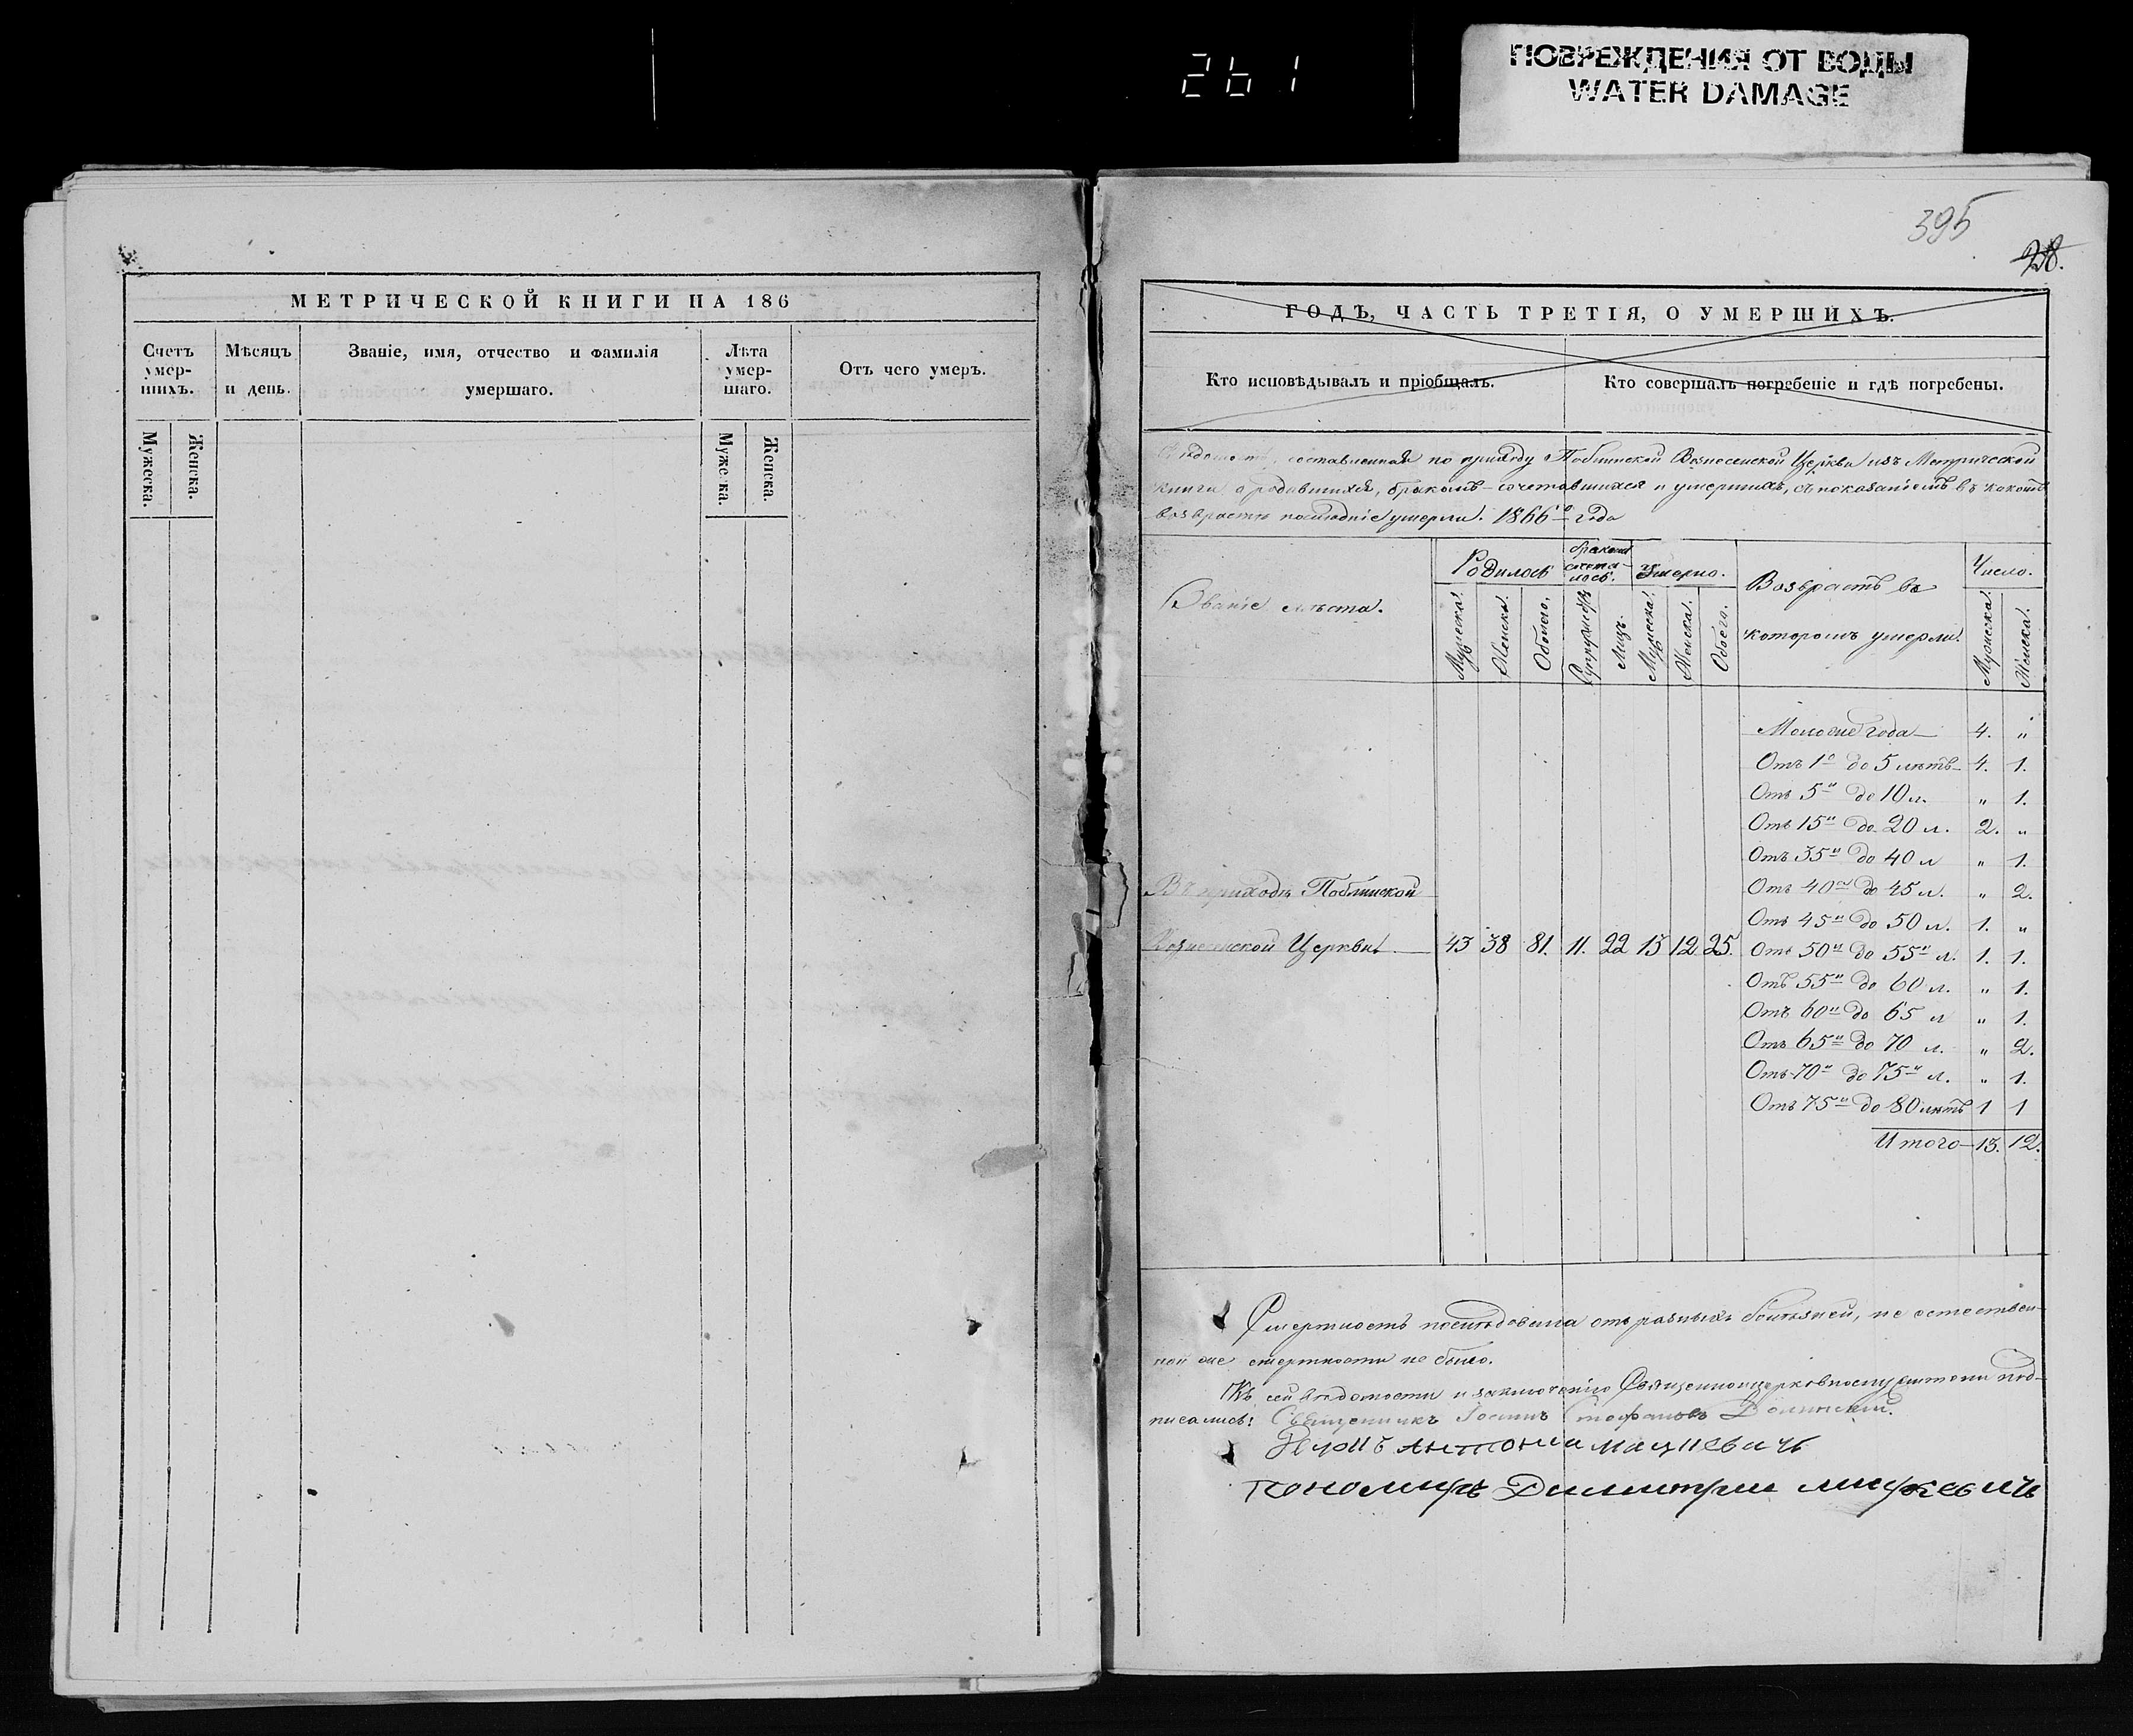 261
ПОВРЕЖДЕНИЯ ОТ ВОДЫ
WATER DAMAGE
395
28.
МЕТРИЧЕСКОЙ КНИГИ НА 186
Счетъ умер-шихъ.
Мѣсяцъ и день.
Званіе, имя, отчество и фамилія умершаго.
Лѣта умер-шаго.
Отъ чего умеръ.
Мужеска.
Женска.
Мужеска.
Женска.
ГОДЪ, ЧАСТЬ ТРЕТІЯ, О УМЕРШИХЪ.
Кто исповѣдывалъ и пріобщалъ.
Кто совершалъ погребеніе и гдѣ погребены.
составленная по приходу Вознесенской Церкви изъ Метрической
книги о родившихся, бракомъ-сочетавшихся и умершихъ, съ показаніемъ въ какомъ
возврастѣ послѣдніе умерли. 1866го года
Званіе мѣста.
Родилось
бракомъ сочета-лось.
Умерло.
Возврастъ въ
которомъ умерли.
Число.
Мужеска.
Женска.
Обоего.
Супружествъ
Лицъ.
Мужеска.
Женска.
Обоего.
Мужеска.
Женска.
Моложе года — 4. "
Отъ 1го до 5 лѣтъ — 4. 1.
Отъ 5и до 10 л. " 1.
Отъ 15и до 20 л. 2. "
Отъ 35и до 40 л " 1.
Въ приходѣ
Отъ 40 до 45 л. " 2.
Отъ 45и до 50 л. 1. "
Вознесенской Церкви — 43 38 81. 11. 22 13 12 25.
Отъ 50и до 55и л. 1. 1.
Отъ 55и до 60 л. " 1.
Отъ 60и до 65 л " 1.
Отъ 65и до 70 л. " 2.
Отъ 70и до 75и л. " 1.
Отъ 75и до 80 лѣтъ 1 1
Итого — 13. 12.
Смертность послѣдовала отъ разныхъ болѣзней, не естествен-
ной же смертности не было.
Къ сей вѣдомости и заключенію Священноцерковнослужители под-
писались: Священникъ Іоаннъ Стефановъ
Антоній Мацкевичъ
пономарь Димитрій